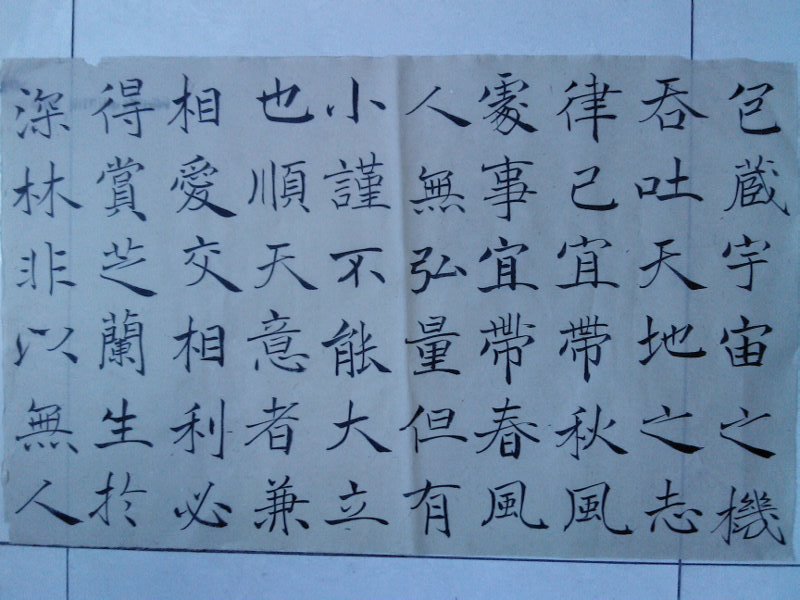 包蔵宇宙之機
吞吐天地之志
律己宜帶秋風
處事宜帶春風
人無弘量但有
小謹不能大立
也順天意者兼
相愛交相利必
得賞芝蘭生於
深林非以無人